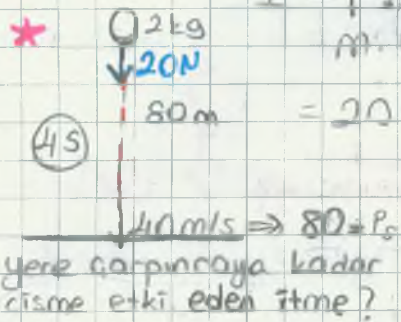 2kg
m:
20N
80m
= 20
4s
40m/s ⇒ 80 = Ps
yere çarpıncaya kadar
cisme etki eden itme?